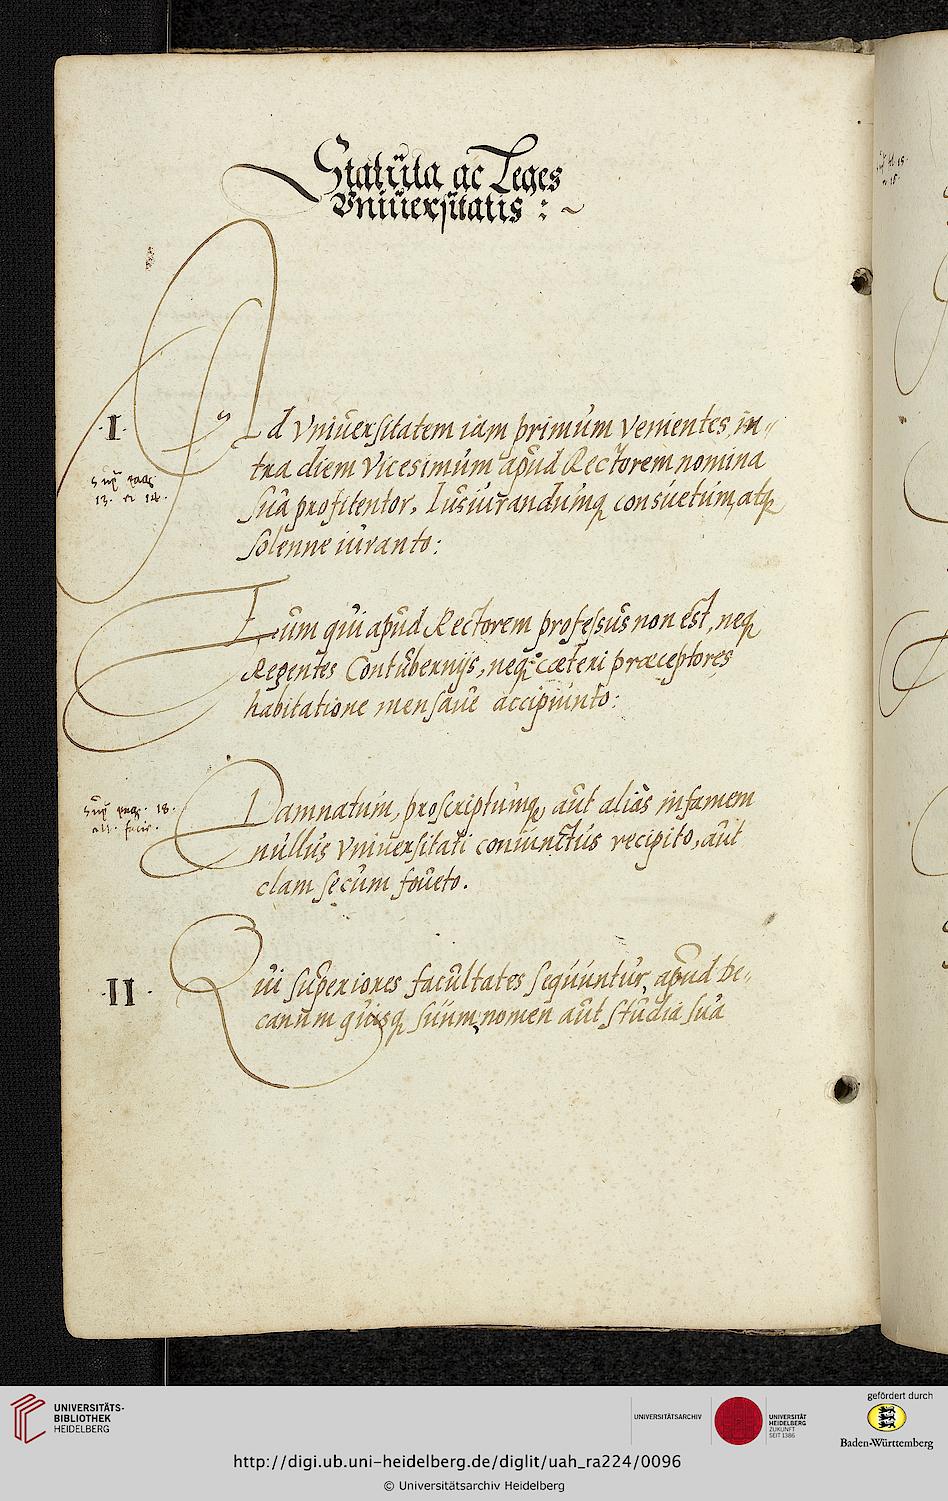 Statuta ac Leges
Vniuersitatis : ~
I
Ad Vniuersitatem iam primùm venientes, in-
tra diem vicesimùm apud Rectorem nomina
sua profitentor, Iusiurandumq consuetum, atq
solenne iuranto:
sup pag.
13. et 14.
Eum qui apud Rectorem professus non est, neq
Regentes Contubernijs, neq cæteri præceptores
habitatione mensaue accipiunto:
Damnatum, proscriptumq, aut aliàs infamem
nullus Vniuersitati coniunctus recipito, aut
clam secum foueto.
sup pag. 18.
II
Qui superiores facultates sequuntur, apud De-
canum quisq suum nomen aut studia sua
UNIVERSITÄTS-
BIBLIOTHEK
HEIDELBERG
UNIVERSITÄTSARCHIV
UNIVERSITÄT
HEIDELBERG
ZUKUNFT
SEIT 1386
gefördert durch
Baden-Württemberg
http://digi.ub.uni-heidelberg.de/diglit/uah_ra224/0096
© Universitätsarchiv Heidelberg